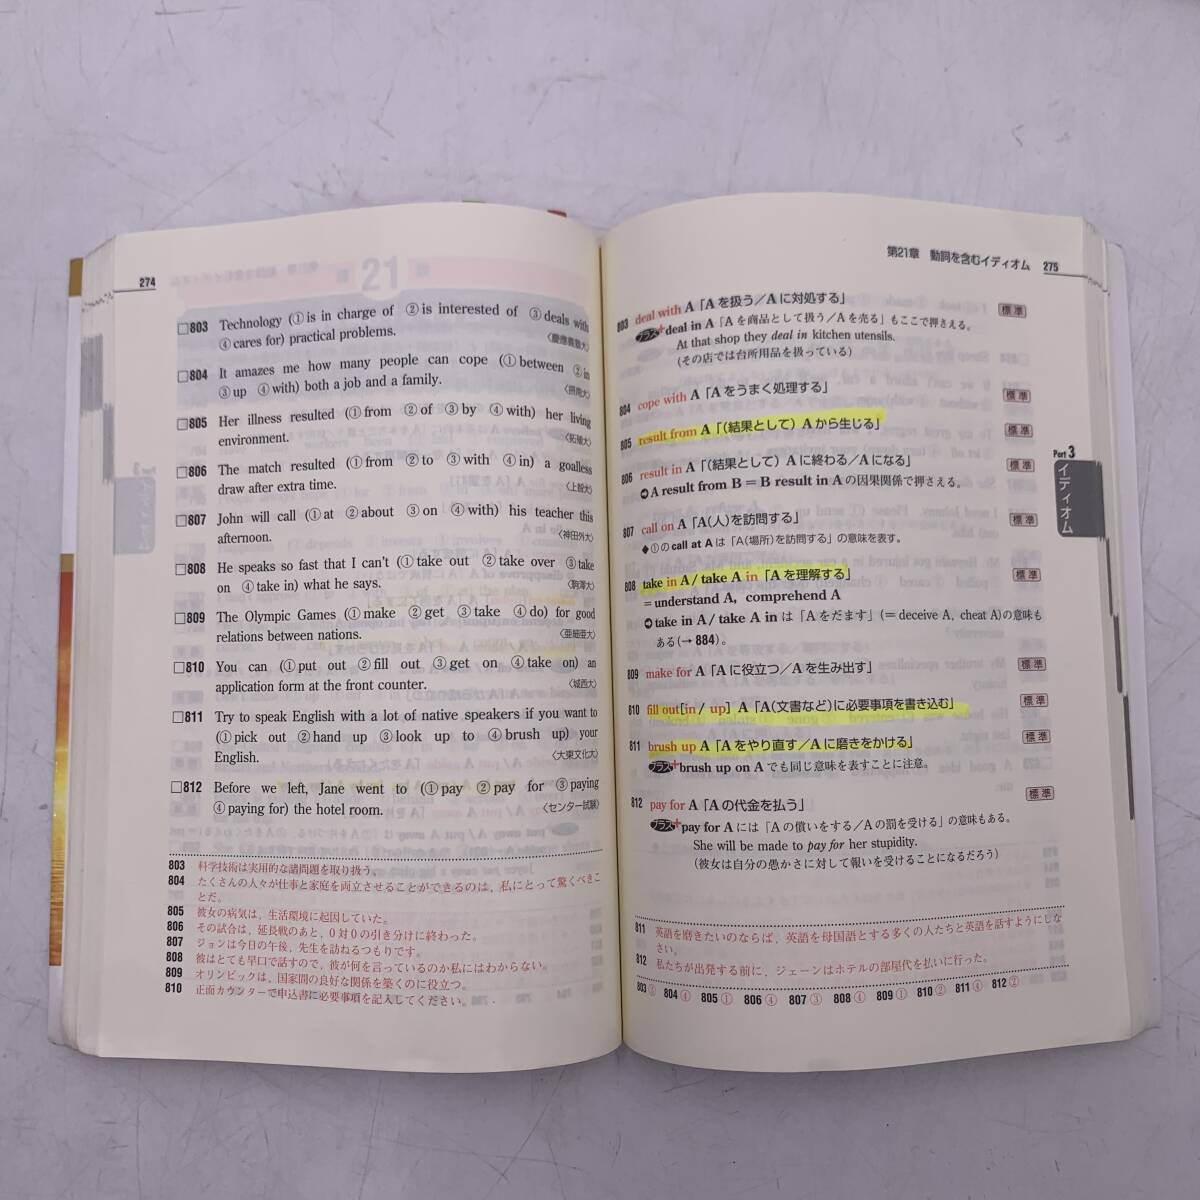 274
□803 Technology (①is in charge of ②is interested of ③deals with
④cares for) practical problems. 〈慶應義塾大〉
□804 It amazes me how many people can cope (①between ②in
③up ④with) both a job and a family. 〈摂南大〉
□805 Her illness resulted (①from ②of ③by ④with) her living
environment. 〈拓殖大〉
□806 The match resulted (①from ②to ③with ④in) a goalless
draw after extra time. 〈上智大〉
□807 John will call (①at ②about ③on ④with) his teacher this
afternoon. 〈神田外大〉
□808 He speaks so fast that I can't (①take out ②take over ③take
on ④take in) what he says. 〈駒澤大〉
□809 The Olympic Games (①make ②get ③take ④do) for good
relations between nations. 〈亜細亜大〉
□810 You can (①put out ②fill out ③get on ④take on) an
application form at the front counter. 〈城西大〉
□811 Try to speak English with a lot of native speakers if you want to
(①pick out ②hand up ③look up to ④brush up) your
English. 〈大東文化大〉
□812 Before we left, Jane went to (①pay ②pay for ③paying
④paying for) the hotel room. 〈センター試験〉
803 科学技術は実用的な諸問題を取り扱う。
804 たくさんの人々が仕事と家庭を両立させることができるのは、私にとって驚くべきこ
とだ。
805 彼女の病気は、生活環境に起因していた。
806 その試合は、延長戦のあと、0対0の引き分けに終わった。
807 ジョンは今日の午後、先生を訪ねるつもりです。
808 彼はとても早口で話すので、彼が何を言っているのか私にはわからない。
809 オリンピックは、国家間の良好な関係を築くのに役立つ。
810 正面カウンターで申込書に必要事項を記入してください。
第21章 動詞を含むイディオム 275
803 deal with A「Aを扱う/Aに対処する」 標準
プラス+ deal in A「Aを商品として扱う/Aを売る」もここで押さえる。
At that shop they deal in kitchen utensils.
(その店では台所用品を扱っている)
804 cope with A「Aをうまく処理する」 標準
805 result from A「(結果として)Aから生じる」 標準
806 result in A「(結果として)Aに終わる/Aになる」 標準
➲A result from B = B result in A の因果関係で押さえる。
807 call on A「A(人)を訪問する」 標準
◆①の call at A は「A(場所)を訪問する」の意味を表す。
808 take in A / take A in「Aを理解する」 標準
= understand A, comprehend A
➲take in A / take A in は「Aをだます」(= deceive A, cheat A)の意味も
ある(→ 884)。
809 make for A「Aに役立つ/Aを生み出す」 標準
810 fill out[in / up] A「A(文書など)に必要事項を書き込む」 標準
811 brush up A「Aをやり直す/Aに磨きをかける」 標準
プラス+ brush up on A でも同じ意味を表すことに注意。
812 pay for A「Aの代金を払う」 標準
プラス+ pay for A には「Aの償いをする/Aの罰を受ける」の意味もある。
She will be made to pay for her stupidity.
(彼女は自分の愚かさに対して報いを受けることになるだろう)
811 英語を磨きたいのならば、英語を母国語とする多くの人たちと英語を話すようにしな
さい。
812 私たちが出発する前に、ジェーンはホテルの部屋代を払いに行った。
803 ③ 804 ④ 805 ① 806 ④ 807 ③ 808 ④ 809 ① 810 ② 811 ④ 812 ②
Part 3
イディオム